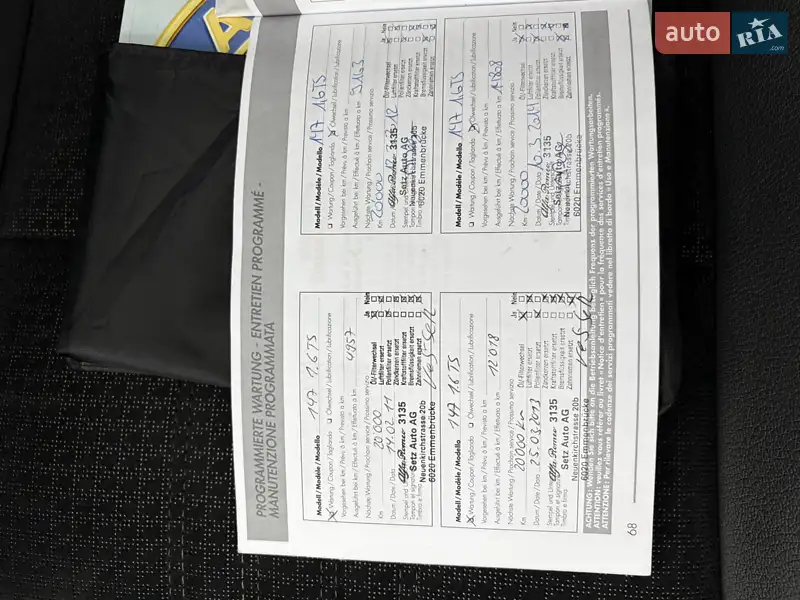 auto RIA .com
PROGRAMMIERTE WARTUNG - ENTRETIEN PROGRAMMÉ -
MANUTENZIONE PROGRAMMATA
Modell / Modèle / Modello 147 1.6 TS
Wartung / Coupon / Tagliando Ölwechsel / Lubrification / Lubrificazione
Vorgesehen bei km / Prévu à km / Previsto a km
Ausgeführt bei km / Effectué à km / Effettuato a km 4857
Nächste Wartung / Prochain service / Prossimo servizio
Km 20 000
Datum / Date / Data 14.02.11
Ja Nein
Öl-/Filterwechsel
Luftfilter ersetzt
Pollenfilter ersetzt
Zündkerzen ersetzt
Kraftstofffilter ersetzt
Bremsflüssigkeit ersetzt
Zahnriemen ersetzt
Alfa Romeo 3135
Setz Auto AG
Neuenkirchstrasse 20b
6020 Emmenbrücke
Modell / Modèle / Modello 147 1.6 TS
Wartung / Coupon / Tagliando Ölwechsel / Lubrification / Lubrificazione
Vorgesehen bei km / Prévu à km / Previsto a km
Ausgeführt bei km / Effectué à km / Effettuato a km 9163
Nächste Wartung / Prochain service / Prossimo servizio
Km 20000
Ja Nein
Öl-/Filterwechsel
Luftfilter ersetzt
Pollenfilter ersetzt
Zündkerzen ersetzt
Kraftstofffilter ersetzt
Bremsflüssigkeit ersetzt
Zahnriemen ersetzt
Alfa Romeo 3135
Setz Auto AG
6020 Emmenbrücke
Modell / Modèle / Modello 147 1.6 TS
Wartung / Coupon / Tagliando Ölwechsel / Lubrification / Lubrificazione
Vorgesehen bei km / Prévu à km / Previsto a km
Ausgeführt bei km / Effectué à km / Effettuato a km 12'018
Nächste Wartung / Prochain service / Prossimo servizio
Km 20000 Km
Datum / Date / Data 25.03.2013
Ja Nein
Öl-/Filterwechsel
Luftfilter ersetzt
Pollenfilter ersetzt
Zündkerzen ersetzt
Kraftstofffilter ersetzt
Bremsflüssigkeit ersetzt
Zahnriemen ersetzt
Alfa Romeo 3135
Setz Auto AG
Neuenkirchstrasse 20b
6020 Emmenbrücke
Modell / Modèle / Modello 147 1.6 TS
Wartung / Coupon / Tagliando Ölwechsel / Lubrification / Lubrificazione
Vorgesehen bei km / Prévu à km / Previsto a km
Ausgeführt bei km / Effectué à km / Effettuato a km 14808
Nächste Wartung / Prochain service / Prossimo servizio
Km 20000
Datum / Date / Data 10.3.2014
Ja Nein
Öl-/Filterwechsel
Luftfilter ersetzt
Pollenfilter ersetzt
Zündkerzen ersetzt
Kraftstofffilter ersetzt
Bremsflüssigkeit ersetzt
Zahnriemen ersetzt
Alfa Romeo 3135
Setz Auto AG
6020 Emmenbrücke
ACHTUNG: Wenden Sie sich bitte an die Betriebsanleitung bezüglich Frequenz der programmierten Wartungsarbeiten.
ATTENTION: veuillez vous référer au livret « Notice d'entretien » pour la fréquence des services d'entretien programmés.
ATTENZIONE: Per rilevare le cadenze dei servizi programmati vedere nel libretto di bordo « Uso e Manutenzione ».
68